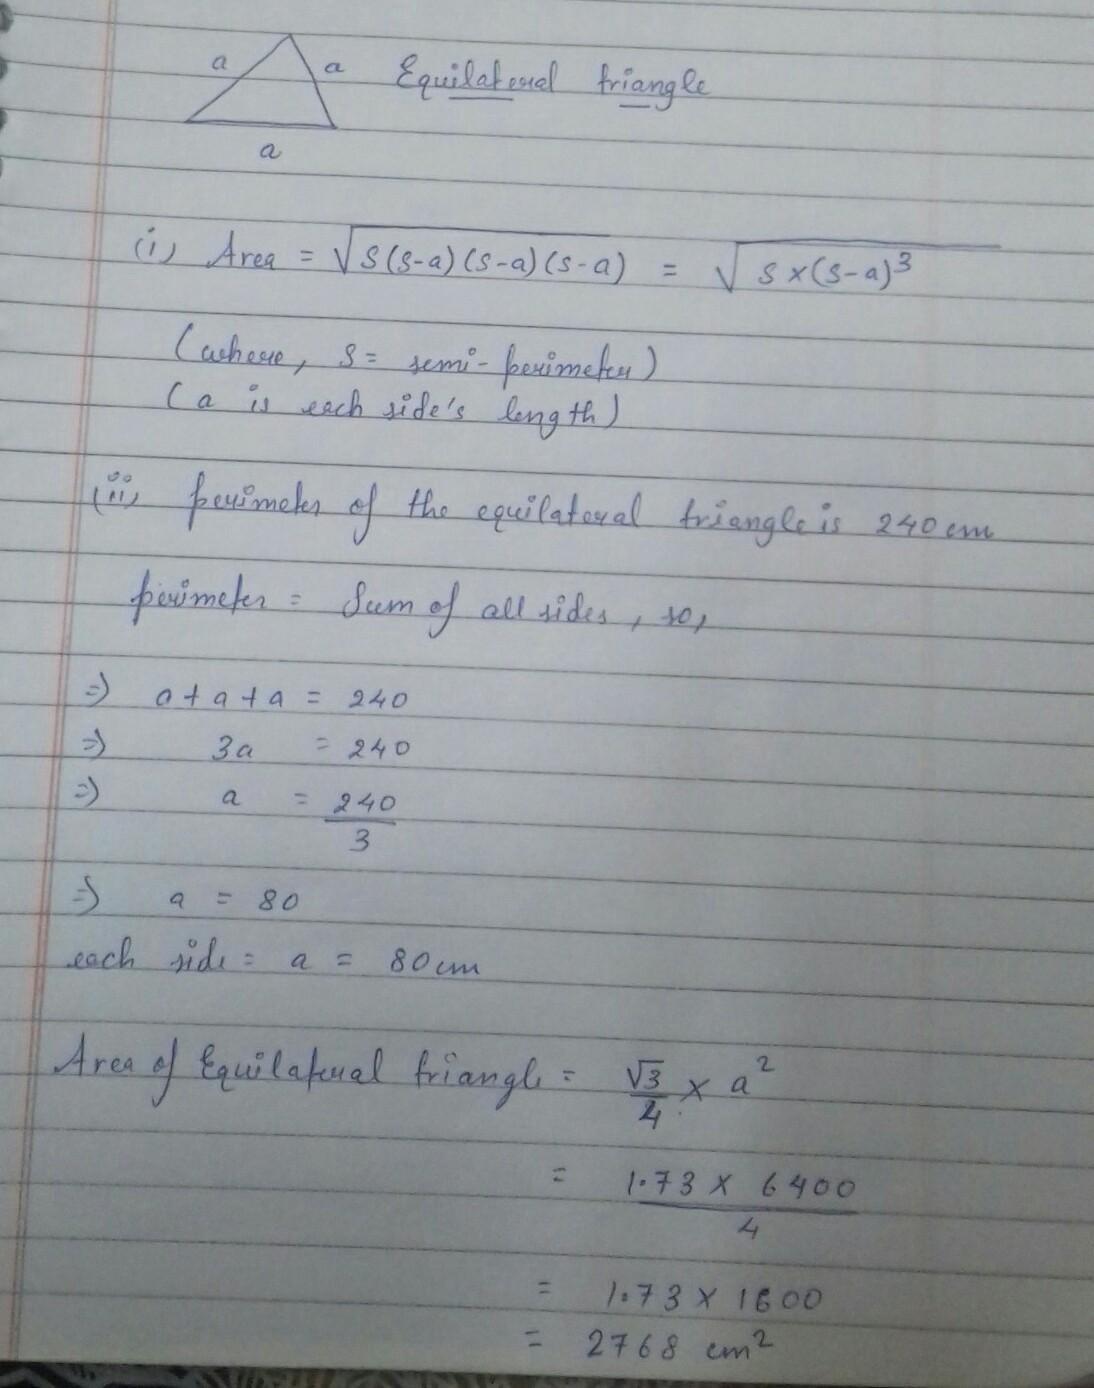 a a Equilateral triangle
a
(i) Area = √S(S-a)(S-a)(S-a) = √S×(S-a)³
(where, S = semi-perimeter)
(a is each side's length)
(ii) perimeter of the equilateral triangle is 240 cm
perimeter = Sum of all sides, so,
⇒ a + a + a = 240
⇒ 3a = 240
⇒ a = 240
3
⇒ a = 80
each side = a = 80 cm
Area of Equilateral triangle = √3/4 × a²
= 1.73 × 6400
4
= 1.73 × 1600
= 2768 cm²